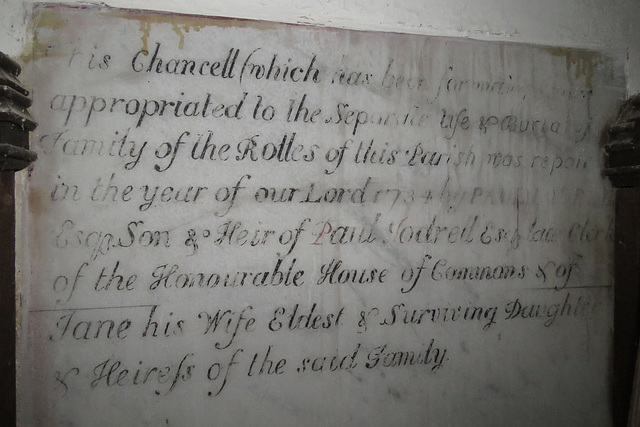 is Chancell (which has been
appropriated to the Separate Use & Burial of
Family of the Rolles of this Parish was repair
in the year of our Lord 1734 by
Esqr. Son & Heir of Paul Jodrell Esq late Clerk
of the Honourable House of Commons & of
Jane his Wife Eldest & Surviving Daughter
& Heiress of the said Family